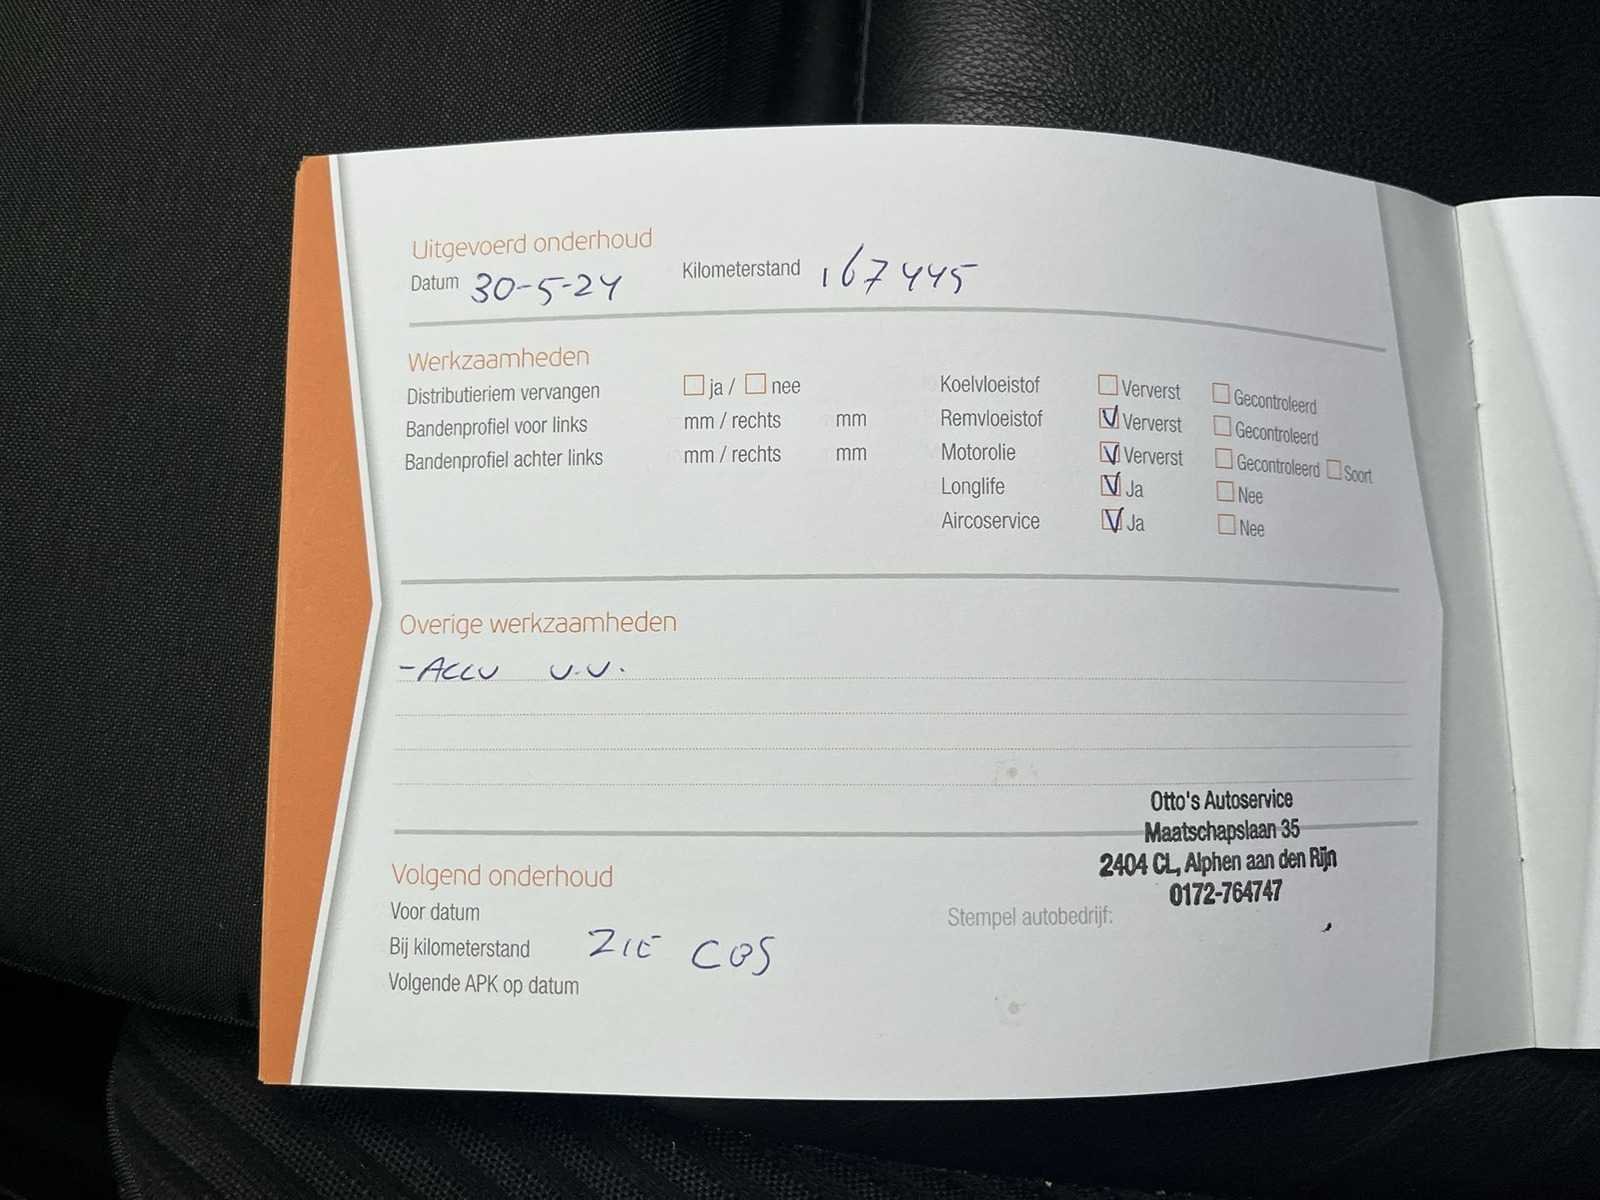 Uitgevoerd onderhoud
Datum 30-5-24 Kilometerstand 167445
Werkzaamheden
Distributieriem vervangen ja / nee
Bandenprofiel voor links mm / rechts mm
Bandenprofiel achter links mm / rechts mm
Koelvloeistof Ververst Gecontroleerd
Remvloeistof Ververst Gecontroleerd
Motorolie Ververst Gecontroleerd Soort
Longlife Ja Nee
Aircoservice Ja Nee
Overige werkzaamheden
- ACCU V.V.
Otto's Autoservice
Maatschapslaan 35
2404 CL, Alphen aan den Rijn
0172-764747
Stempel autobedrijf:
Volgend onderhoud
Voor datum
Bij kilometerstand ZIE CBS
Volgende APK op datum